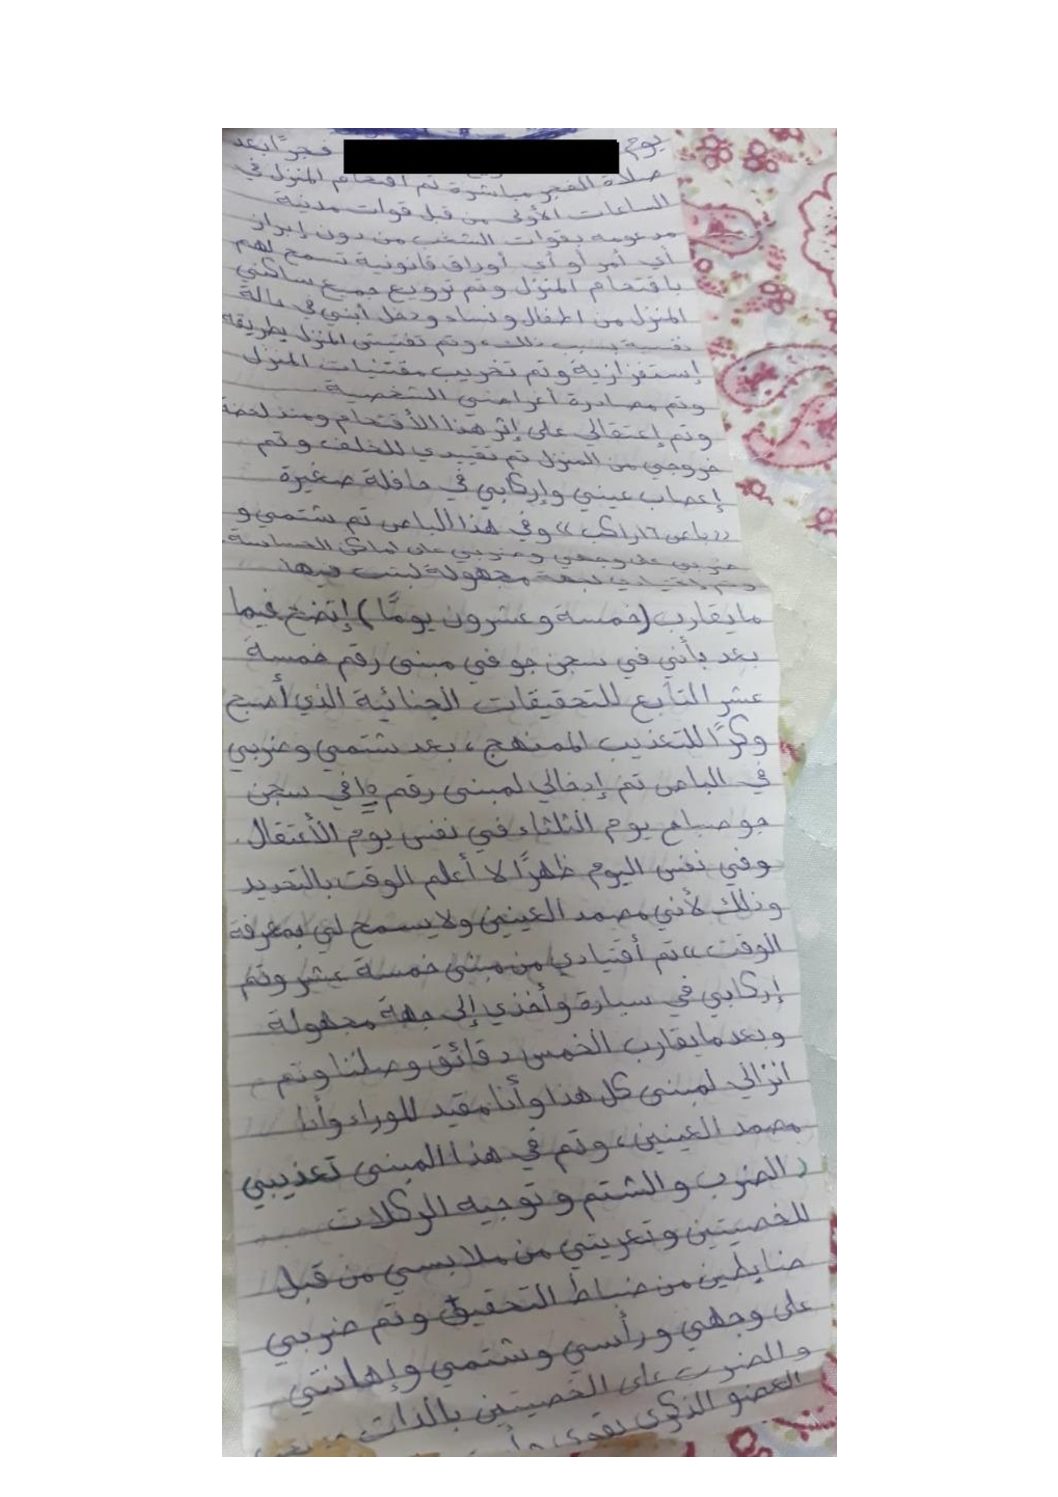 يوم فجرًا بعد
صلاة الفجر مباشرة تم اقتحام المنزل في
الساعات الأولى من قبل قوات مدنية
مدعومه بقوات الشغب من دون إبراز
أي أمر أو أي أوراق قانونية تسمح لهم
باقتحام المنزل وتم ترويع جميع ساكني
المنزل من اطفال و نساء ودخل أبني في حالة
نفسية بسبب ذلك، وتم تفتيش المنزل بطريقة
إستفزازية وتم تخريب مقتنيات المنزل
وتم مصادرة أغراضي الشخصية
وتم إعتقالي على إثر هذا الأقتحام ومنذ لحظة
خروجي من المنزل تم تقييدي للخلف و تم
إعصاب عيني وإركابي في حافلة صغيرة
((باص ١٢ راكب)) وفي هذا الباص تم شتمي و
ضربي على وجهي وضربي على اماكن الحساسة
وتم إقتيادي لجهة مجهولة لبثت فيها
مايقارب (خمسة وعشرون يومًا) إتضح فيما
بعد بأني في سجن جو في مبنى رقم خمسة
عشر التابع للتحقيقات الجنائية الذي أصبح
وكرًا للتعذيب الممنهج، بعد شتمي وضربي
في الباص تم إدخالي لمبنى رقم ١٥ في سجن
جو صباح يوم الثلثاء في نفس يوم الأعتقال.
وفي نفس اليوم ظهرًا لا أعلم الوقت بالتحديد
وذلك لأني مصمد العينين ولا يسمح لي بمعرفة
الوقت،، تم أقتيادي من مبنى خمسة عشر وتم
إركابي في سيارة وأخذي إلى جهة مجهولة
وبعد مايقارب الخمس دقائق وصلنا وتم
انزالي لمبنى كل هذا وأنا مقيد للوراء وأنا
مصمد العينين، وتم في هذا المبنى تعذيبي
بالضرب والشتم و توجيه الركلات
للخصيتين وتعريتي من ملابسي من قبل
ضابطين من ضباط التحقيق وتم ضربي
على وجهي ورأسي وشتمي وإهانتي
والضرب على الخصيتين بالذات
العضو الذكري بقوة